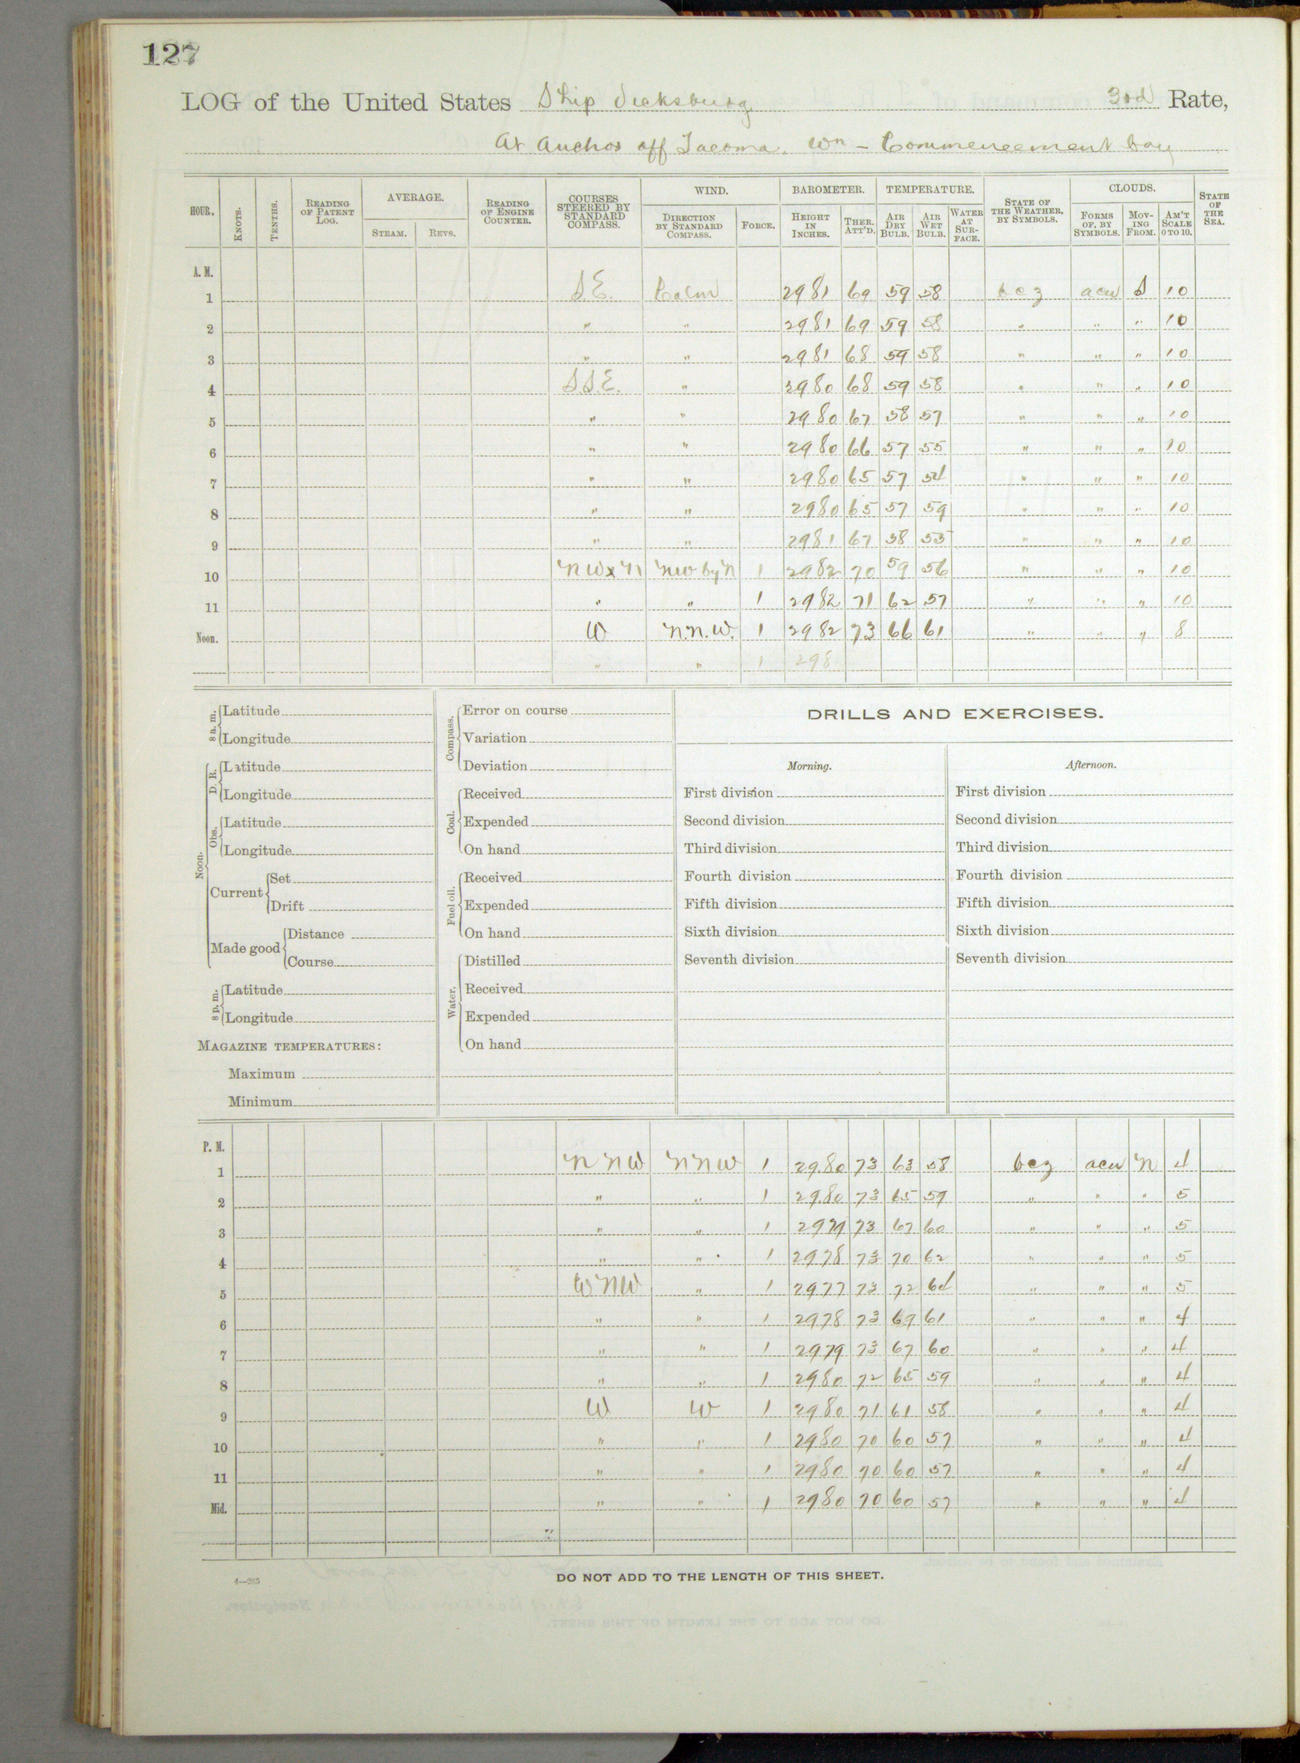 127
LOG of the United States Ship Vicksburg 3rd Rate,
At Anchor off Tacoma. Wn – Commencement bay
HOUR. KNOTS. TENTHS. READING OF PATENT LOG. AVERAGE. STEAM. REVS. READING OF ENGINE COUNTER. COURSES STEERED BY STANDARD COMPASS. WIND. DIRECTION BY STANDARD COMPASS. FORCE. BAROMETER. HEIGHT IN INCHES. THER. ATT'D. TEMPERATURE. AIR DRY BULB. AIR WET BULB. WATER AT SURFACE. STATE OF THE WEATHER, BY SYMBOLS. CLOUDS. FORMS OF, BY SYMBOLS. MOVING FROM. AM'T SCALE 0 TO 10. STATE OF THE SEA.
A. M.
1 S.E. Calm 2981 69 59 58 bcz acu S 10
2 " " 2981 69 59 58 " " " 10
3 " " 2981 68 59 58 " " " 10
4 S.S.E. " 2980 68 59 58 " " " 10
5 " " 2980 67 58 57 " " " 10
6 " " 2980 66 57 55 " " " 10
7 " " 2980 65 57 54 " " " 10
8 " " 2980 65 57 59 " " " 10
9 " " 2981 67 58 55 " " " 10
10 NWxN NW by N 1 2982 70 59 56 " " " 10
11 " " 1 2982 71 62 57 " " " 10
Noon. W N.N.W. 1 2982 73 66 61 " " " 8
" " 1 298
8 a.m. Latitude
Longitude
Noon. D. R. Latitude
Longitude
Obs. Latitude
Longitude
Current Set
Drift
Made good Distance
Course
8 p.m. Latitude
Longitude
MAGAZINE TEMPERATURES:
Maximum
Minimum
Compass. Error on course
Variation
Deviation
Coal. Received
Expended
On hand
Fuel oil. Received
Expended
On hand
Water. Distilled
Received
Expended
On hand
DRILLS AND EXERCISES.
Morning. Afternoon.
First division First division
Second division Second division
Third division Third division
Fourth division Fourth division
Fifth division Fifth division
Sixth division Sixth division
Seventh division Seventh division
P. M.
1 N N W N N W 1 2980 73 63 58 bcz acu N 4
2 " " 1 2980 73 65 59 " " " 5
3 " " 1 2979 73 67 60 " " " 5
4 " " 1 2978 73 70 62 " " " 5
5 WNW " 1 2977 73 72 64 " " " 5
6 " " 1 2978 73 69 61 " " " 4
7 " " 1 2979 73 67 60 " " " 4
8 " " 1 2980 72 65 59 " " " 4
9 W W 1 2980 71 61 58 " " " 4
10 " " 1 2980 70 60 57 " " " 4
11 " " 1 2980 70 60 57 " " " 4
Mid. " " 1 2980 70 60 57 " " " 4
DO NOT ADD TO THE LENGTH OF THIS SHEET.